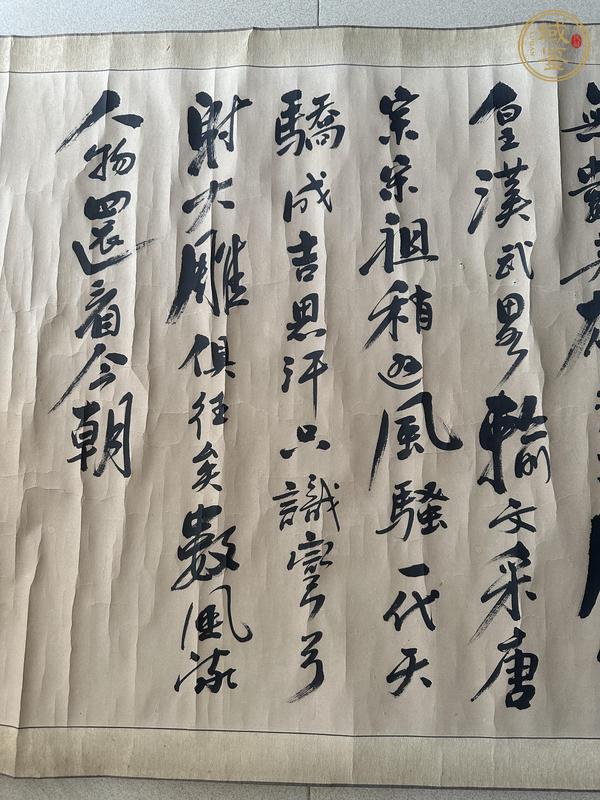 無數英雄
皇漢武畧輸文采唐
宗宋祖稍遜風騷一代天
驕成吉思汗只識彎弓
射大雕俱往矣數風流
人物還看今朝
域鉴